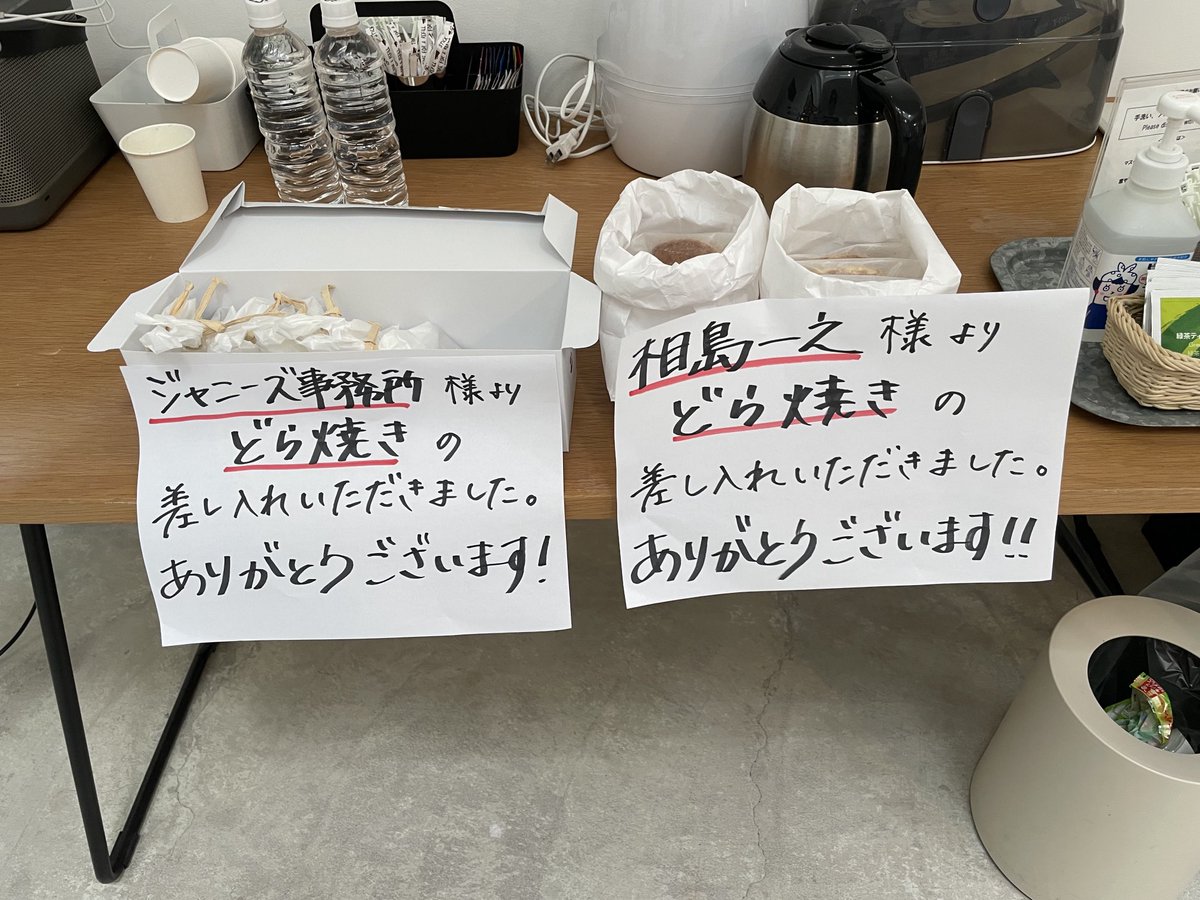 ジャニーズ事務所 様より
どら焼き の
差し入れいただきました。
ありがとうございます!
相島一之 様より
どら焼き の
差し入れいただきました。
ありがとうございます!!
手洗い、
Please d
緑茶ティ